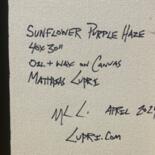 Sunflower Purple Haze
40x30"
Oil + Wax on Canvas
Matthias Lupri
April 202
Lupri.com